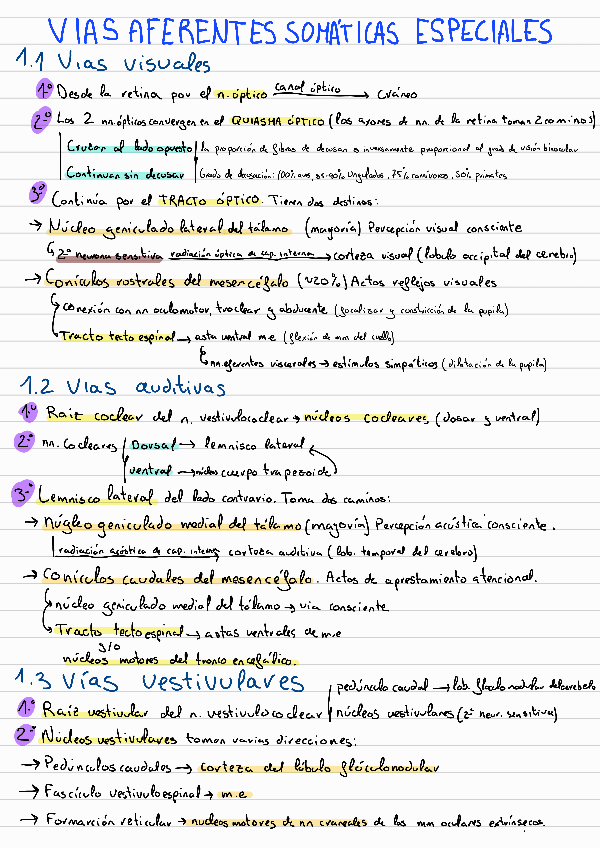 VIAS AFERENTES SOMÁTICAS ESPECIALES
1.1 Vias visuales
1º Desde la retina por el n. óptico canal óptico → Cráneo
2º Los 2 nn. ópticos convergen en el QUIASMA ÓPTICO (los axones de nn. de la retina toman 2 caminos)
Cruzar al lado opuesto la proporción de fibras de decusan es inversamente proporcional al grad de visión binocular
Continuar sin decusar Grado de decusación: 100% aves, 85-90% Ungulados, 75% carnívoros, 50% primates
3º Continúa por el TRACTO ÓPTICO. Tienen dos destinos:
→ Núcleo geniculado lateral del tálamo (mayoría) Percepción visual consciente
2ª neurona sensitiva radiación óptica de cap. interna → corteza visual (lóbulo occipital del cerebro)
→ Conículos rostrales del mesencéfalo (~20%) Actos reflejos visuales
conexión con nn oculomotor, troclear y abducente (focalizar y constricción de la pupila)
Tracto tectoespinal → asta ventral m.e (flexión de mm del cuello)
nn. eferentes viscerales → estímulos simpáticos (dilatación de la pupila)
1.2 Vias auditivas
1º Raíz coclear del n. vestivulococlear → núcleos cocleares (dosar y ventral)
2º nn. Cocleares Dorsal → lemnisco lateral
ventral → núcleo cuerpo trapezoide
3º Lemnisco lateral del lado contrario. Toma dos caminos:
→ Núcleo geniculado medial del tálamo (mayoría) Percepción acústica consciente.
radiación acústica de cap. interna corteza auditiva (lob. temporal del cerebro)
→ Conículos caudales del mesencéfalo. Actos de aprestamiento atencional.
núcleo geniculado medial del tálamo → via consciente
Tracto tectoespinal → astas ventrales de m.e
y/o
núcleos motores del tronco encefálico.
1.3 Vías vestivulares
pedúnculo caudal → lob. floculonodular del cerebelo
1º Raíz vestivular del n. vestivulococlear núcleos vestivulares (2ª neur. sensitiva)
2º Núcleos vestivulares toman varias direcciones:
→ Pedúnculos caudales → corteza del lóbulo floculonodular
→ Fascículo vestivuloespinal → m.e
→ Formarción reticular → nucleos motores de nn craneales de los mm oculares extrínsecos.